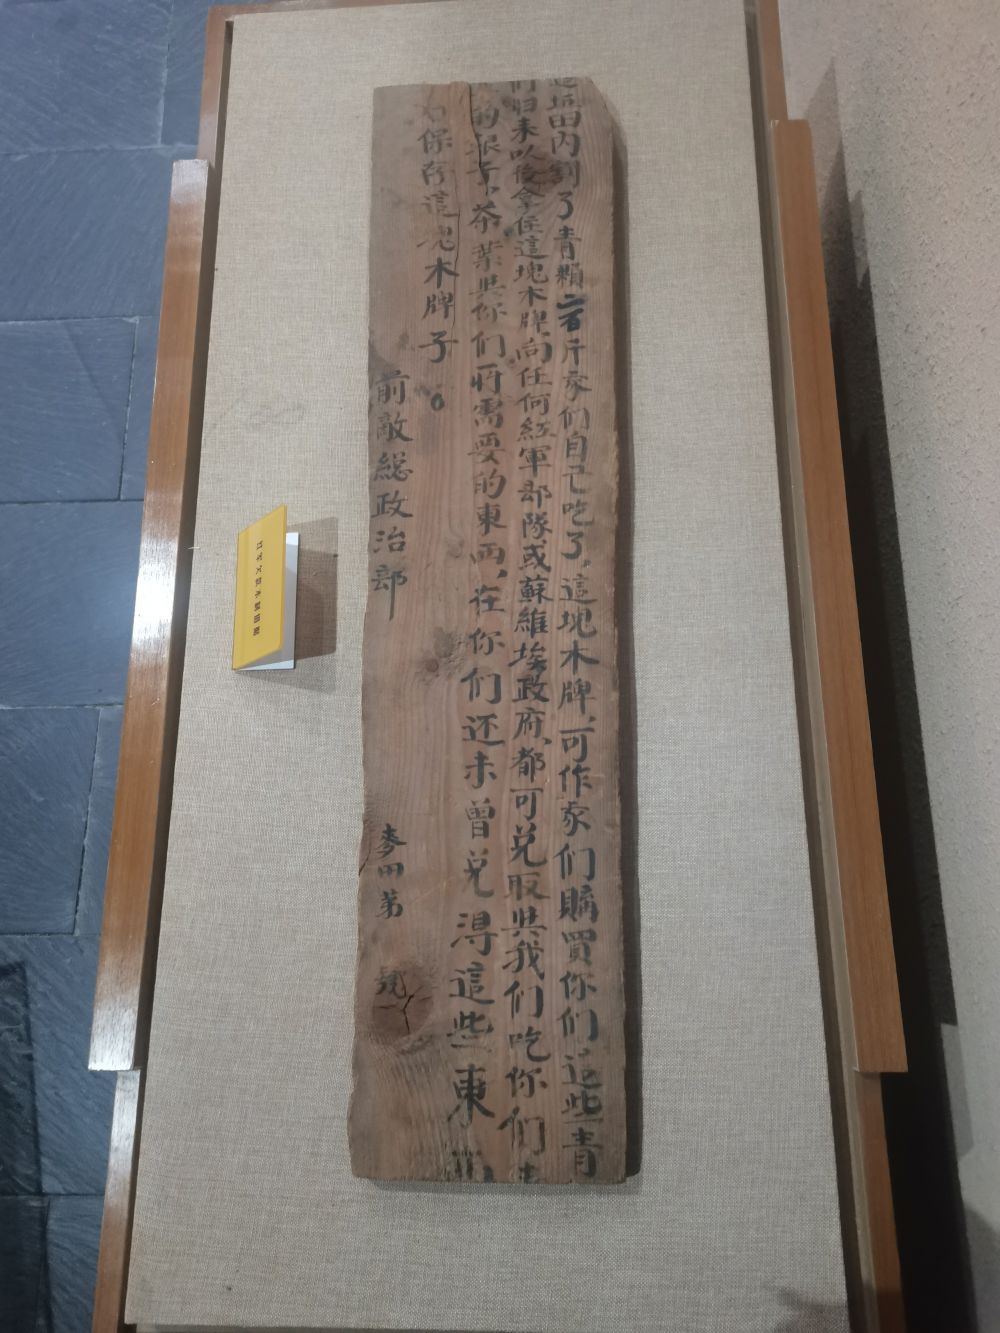 這坵田内割了青顆二百斤家们自己吃了，這塊木牌，可作家们購買你们这些青
们归来以後拿住這塊木牌，向任何紅軍部隊或蘇維埃政府，都可兑取與我们吃你们
的銀子，茶葉與你们所需要的東西，在你们还未曾兑得這些東
保存這塊木牌子。
前敵総政治部
麥田第 號